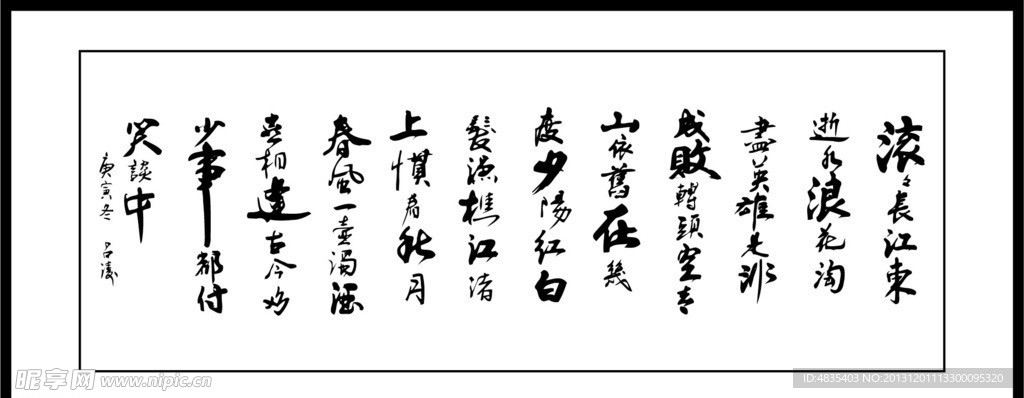 滚々長江東
逝水浪花淘
盡英雄是非
成敗轉頭空青
山依舊在幾
度夕陽紅白
髮漁樵江渚
上慣看秋月
春風一壺濁酒
喜相逢古今多
少事都付
笑談中
庚寅冬
昵享网 www.nipic.cn
ID:4835403 NO:20131201113300095320